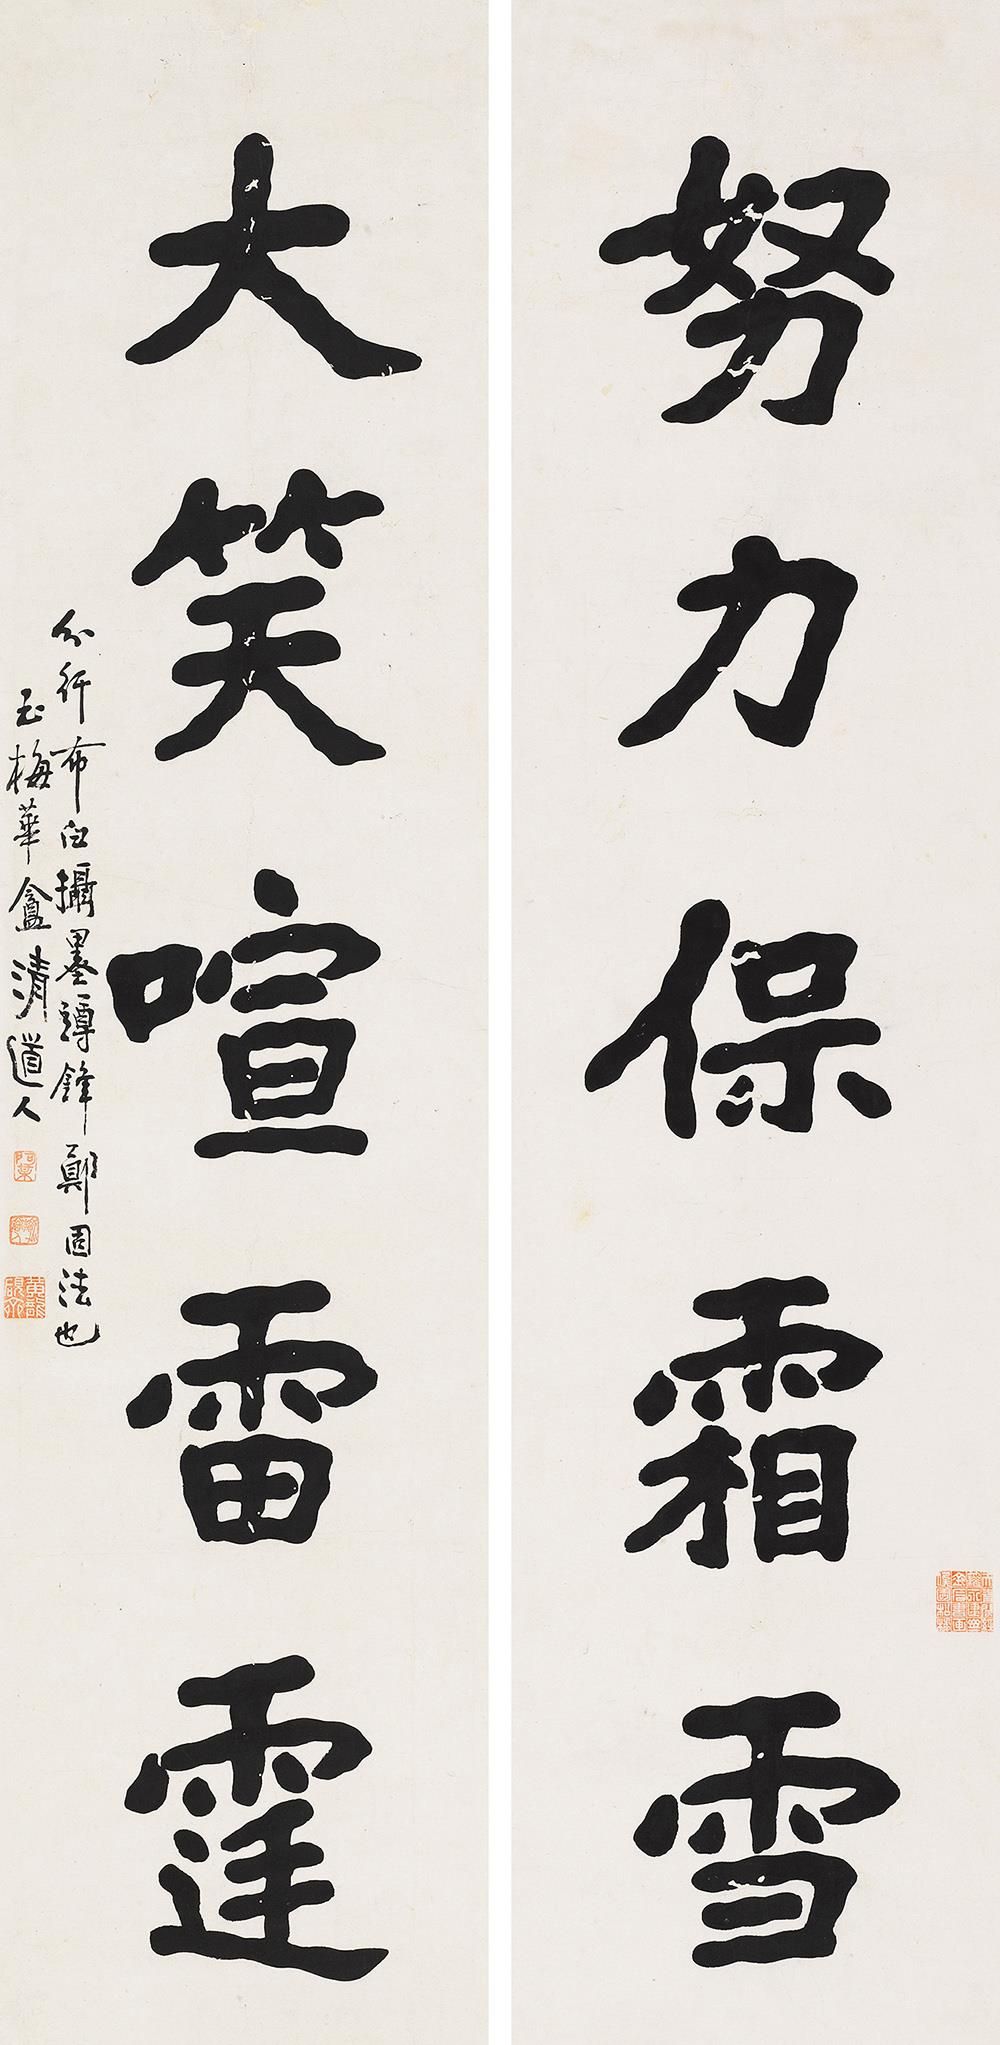 努力保霜雪
大笑喧雷霆
分行布白攝墨蹲鋒鄭固法也
玉梅華盦清道人